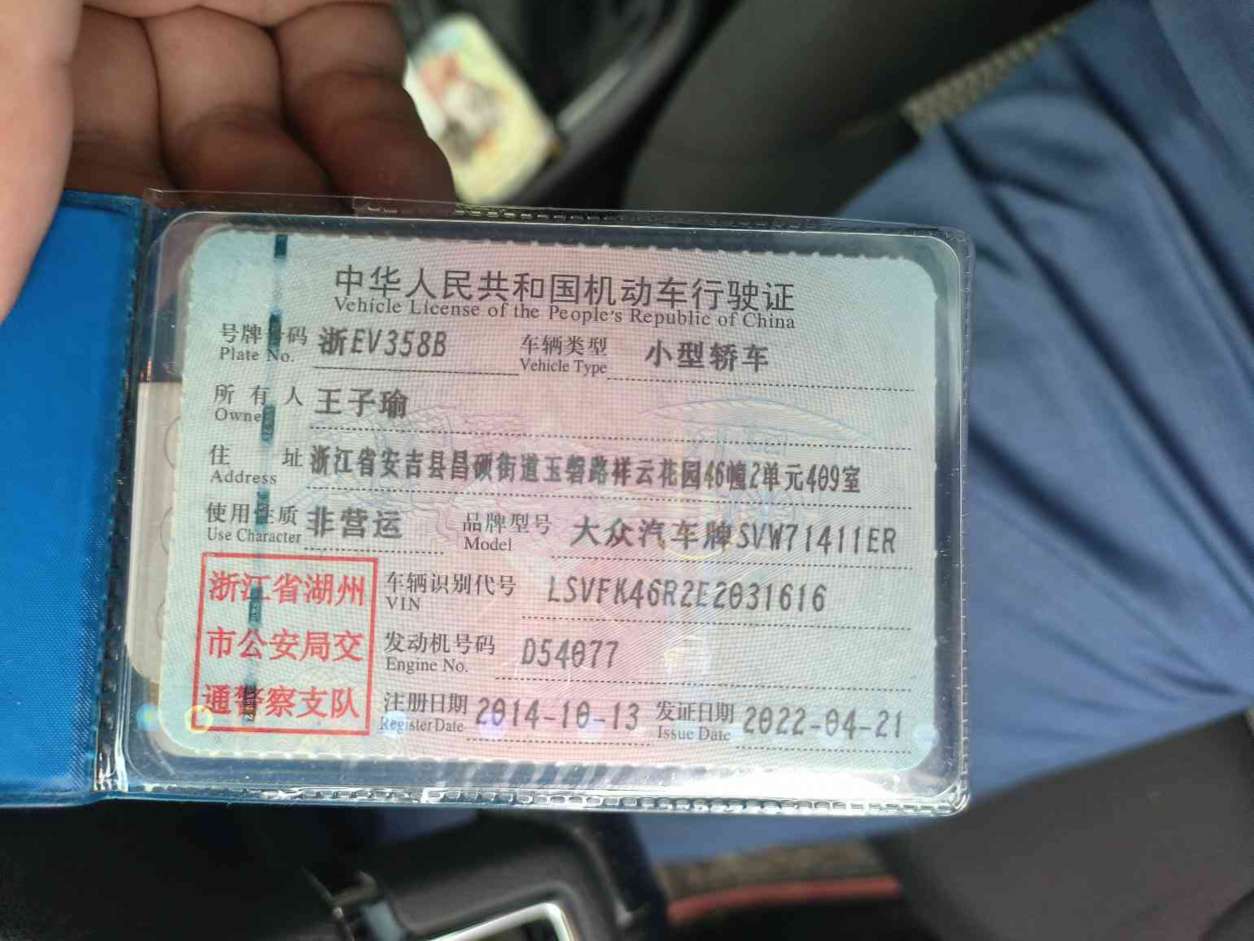 中华人民共和国机动车行驶证
Vehicle License of the People's Republic of China
号牌号码 浙EV358B 车辆类型 小型轿车
Plate No. Vehicle Type
所有人 王子瑜
Owner
住址 浙江省安吉县昌硕街道玉磬路祥云花园46幢2单元409室
Address
使用性质 非营运 品牌型号 大众汽车牌SVW71411ER
Use Character Model
浙江省湖州
市公安局交
通警察支队
车辆识别代号 LSVFK46R2E2031616
VIN
发动机号码 D54077
Engine No.
注册日期 2014-10-13 发证日期 2022-04-21
Register Date Issue Date